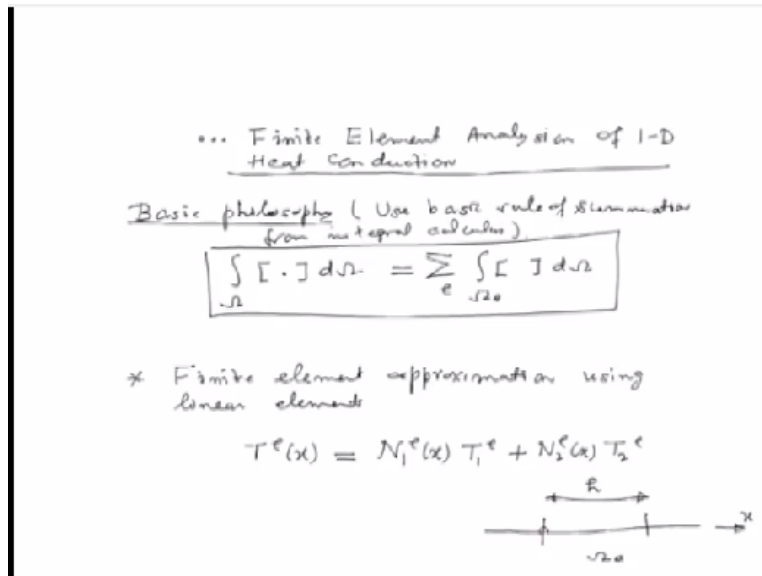 ... Finite Element Analysis of 1-D
Heat Conduction
Basic philosophy (Use basic rule of summation
from integral calculus)
∫_Ω [ . ] dΩ = Σ_e ∫_Ωe [ ] dΩ
* Finite element approximation using
linear elements
T^e(x) = N_1^e(x) T_1^e + N_2^e(x) T_2^e
h
x
Ωe